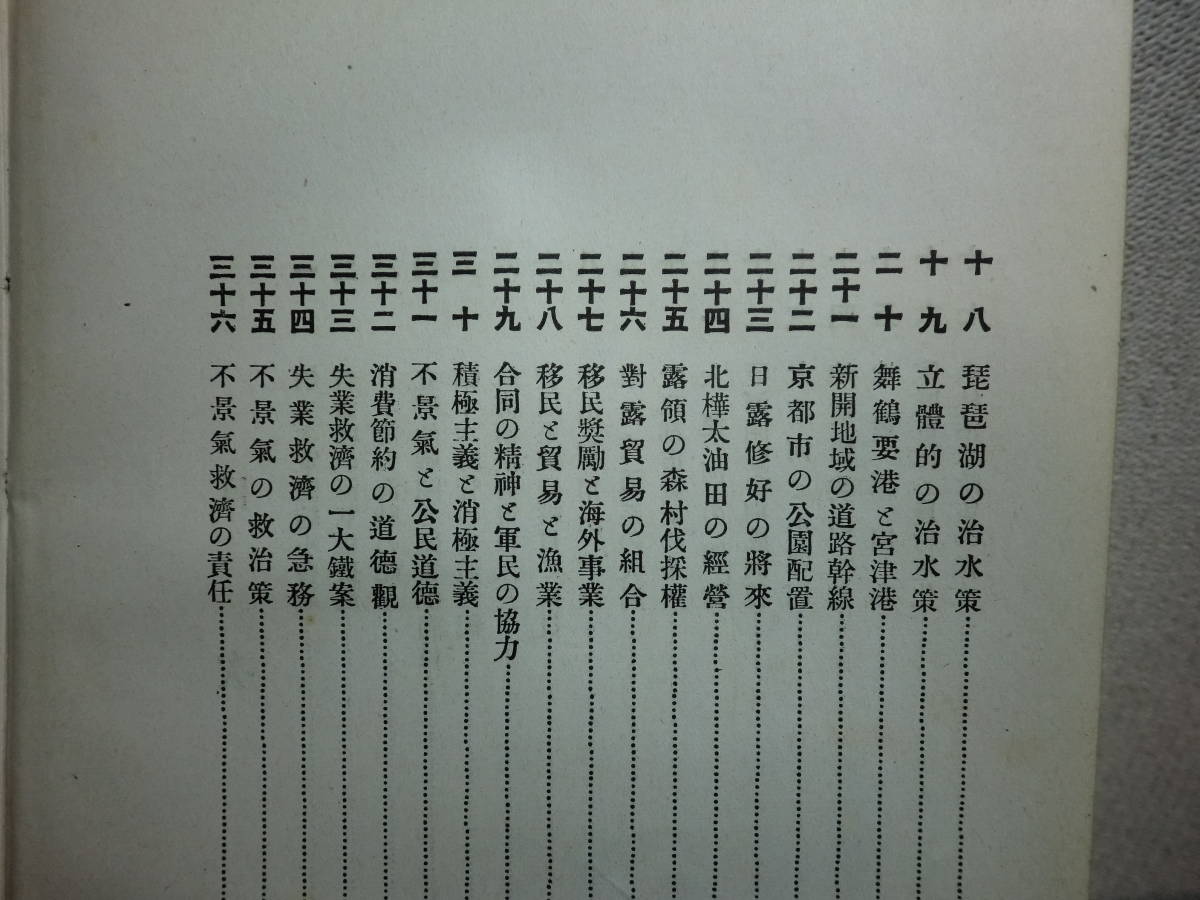 十八 琵琶湖の治水策
十九 立體的の治水策
二十 舞鶴要港と宮津港
二十一 新開地域の道路幹線
二十二 京都市の公園配置
二十三 日露修好の將來
二十四 北樺太油田の經營
二十五 露領の森村伐採權
二十六 對露貿易の組合
二十七 移民奬勵と海外事業
二十八 移民と貿易と漁業
二十九 合同の精神と軍民の協力
三十 積極主義と消極主義
三十一 不景氣と公民道德
三十二 消費節約の道德觀
三十三 失業救濟の一大鐵案
三十四 失業救濟の急務
三十五 不景氣の救治策
三十六 不景氣救濟の責任